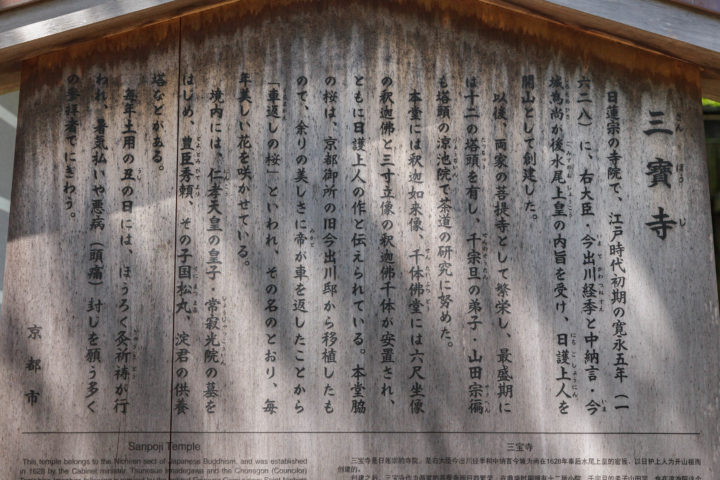 三寶寺
日蓮宗の寺院で、江戸時代初期の寛永五年（一
六二八）に、右大臣・今出川経季と中納言・今
城為尚が後水尾上皇の内旨を受け、日護上人を
開山として創建した。
以後、両家の菩提寺として繁栄し、最盛期に
は十二の塔頭を有し、千宗旦の弟子・山田宗徧
も塔頭の涼池院で茶道の研究に努めた。
本堂には釈迦如来像、千体佛堂には六尺坐像
の釈迦佛と三寸立像の釈迦佛千体が安置され、
ともに日護上人の作と伝えられている。本堂脇
の桜は、京都御所の旧今出川邸から移植したも
ので、余りの美しさに帝が車を返したことから
「車返しの桜」といわれ、その名のとおり、毎
年美しい花を咲かせている。
境内には、仁孝天皇の皇子・常寂光院の墓を
はじめ、豊臣秀頼、その子国松丸、淀君の供養
塔などがある。
毎年土用の丑の日には、ほうろく灸祈祷が行
われ、暑気払いや悪病（頭痛）封じを願う多く
の参拝者でにぎわう。
京都市
Sanpoji Temple
This temple belongs to the Nichiren sect of Japanese Buddhism, and was established
in 1628 by the Cabinet minister, Tsunesue Imadegawa and the Chonagon (Councilor)
三宝寺
三宝寺是日莲宗的寺院，是右大臣今出川经季和中纳言今城为尚在1628年奉后水尾上皇的密旨，以日护上人为开山祖而
创建的。